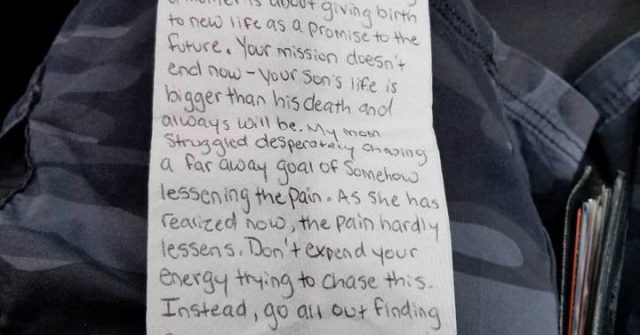 a mother is about giving birth
to new life as a promise to the
future. Your mission doesn't
end now - your son's life is
bigger than his death and
always will be. My mom
struggled desperately chasing
a far away goal of somehow
lessening the pain. As she has
realized now, the pain hardly
lessens. Don't expend your
energy trying to chase this.
Instead, go all out finding